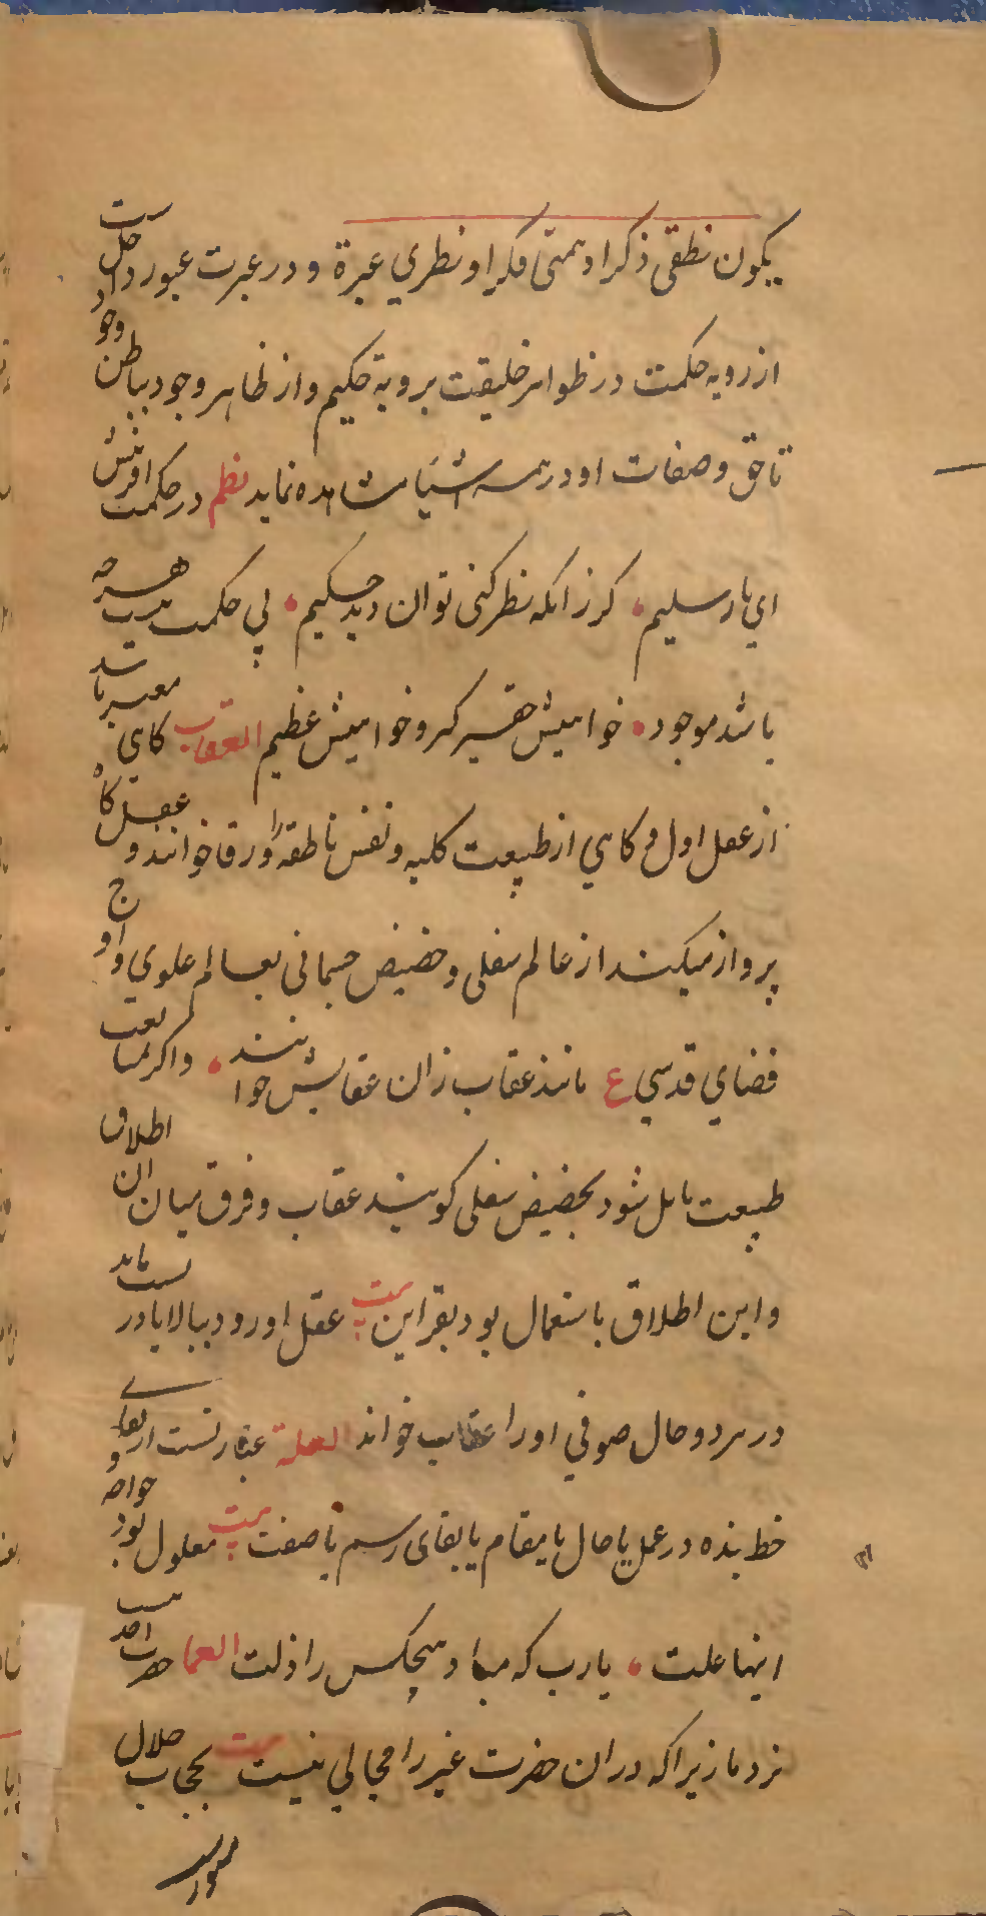 یکون نطقی ذکرا و همتی فکرا و نظری عبرة و در عبرت عبور داخل است
از رویة حکمت در ظواهر خلیقت برویة حکیم و از ظاهر وجود بباطن وجود
تا حق و صفات او در همه اشیا مشاهده نماید نظم در حکمت افرینش
ای یار سلیم کر زانکه نظر کنی توان دید حکیم بی حکمت نیست هرچه
باشد موجود خواهیش حقیر کیر و خواهیش عظیم العقاب کاهی معبر باشد
از عقل اول و کاهی از طبیعت کلیه و نفس ناطقه را ورقا خوانند و عقل کاه
پرواز میکند از عالم سفلی و حضیض جسمانی بعالم علوی و اوج
فضای قدسی ع مانند عقاب زان عقابش خوانند واکر بمتابعت
طبیعت مایل شود بحضیض سفلی کویند عقاب و فرق میان ان اطلاق
و این اطلاق باستعمال بود بقراین بیت عقل او رود ببالا یا در پست ماند
در هر دو حال صوفی اورا عقاب خواند العلة عبارتست از بقای
حظ بنده در عمل یا حال یا مقام یا بقای رسم یا صفت بیت معلول بود و خواجه
اینها علت یارب که مبادا هیچکس را ذلت العما حضرت احدیت
نزد ما زیرا که در ان حضرت غیر را مجالی نیست بیت بحجاب جلال